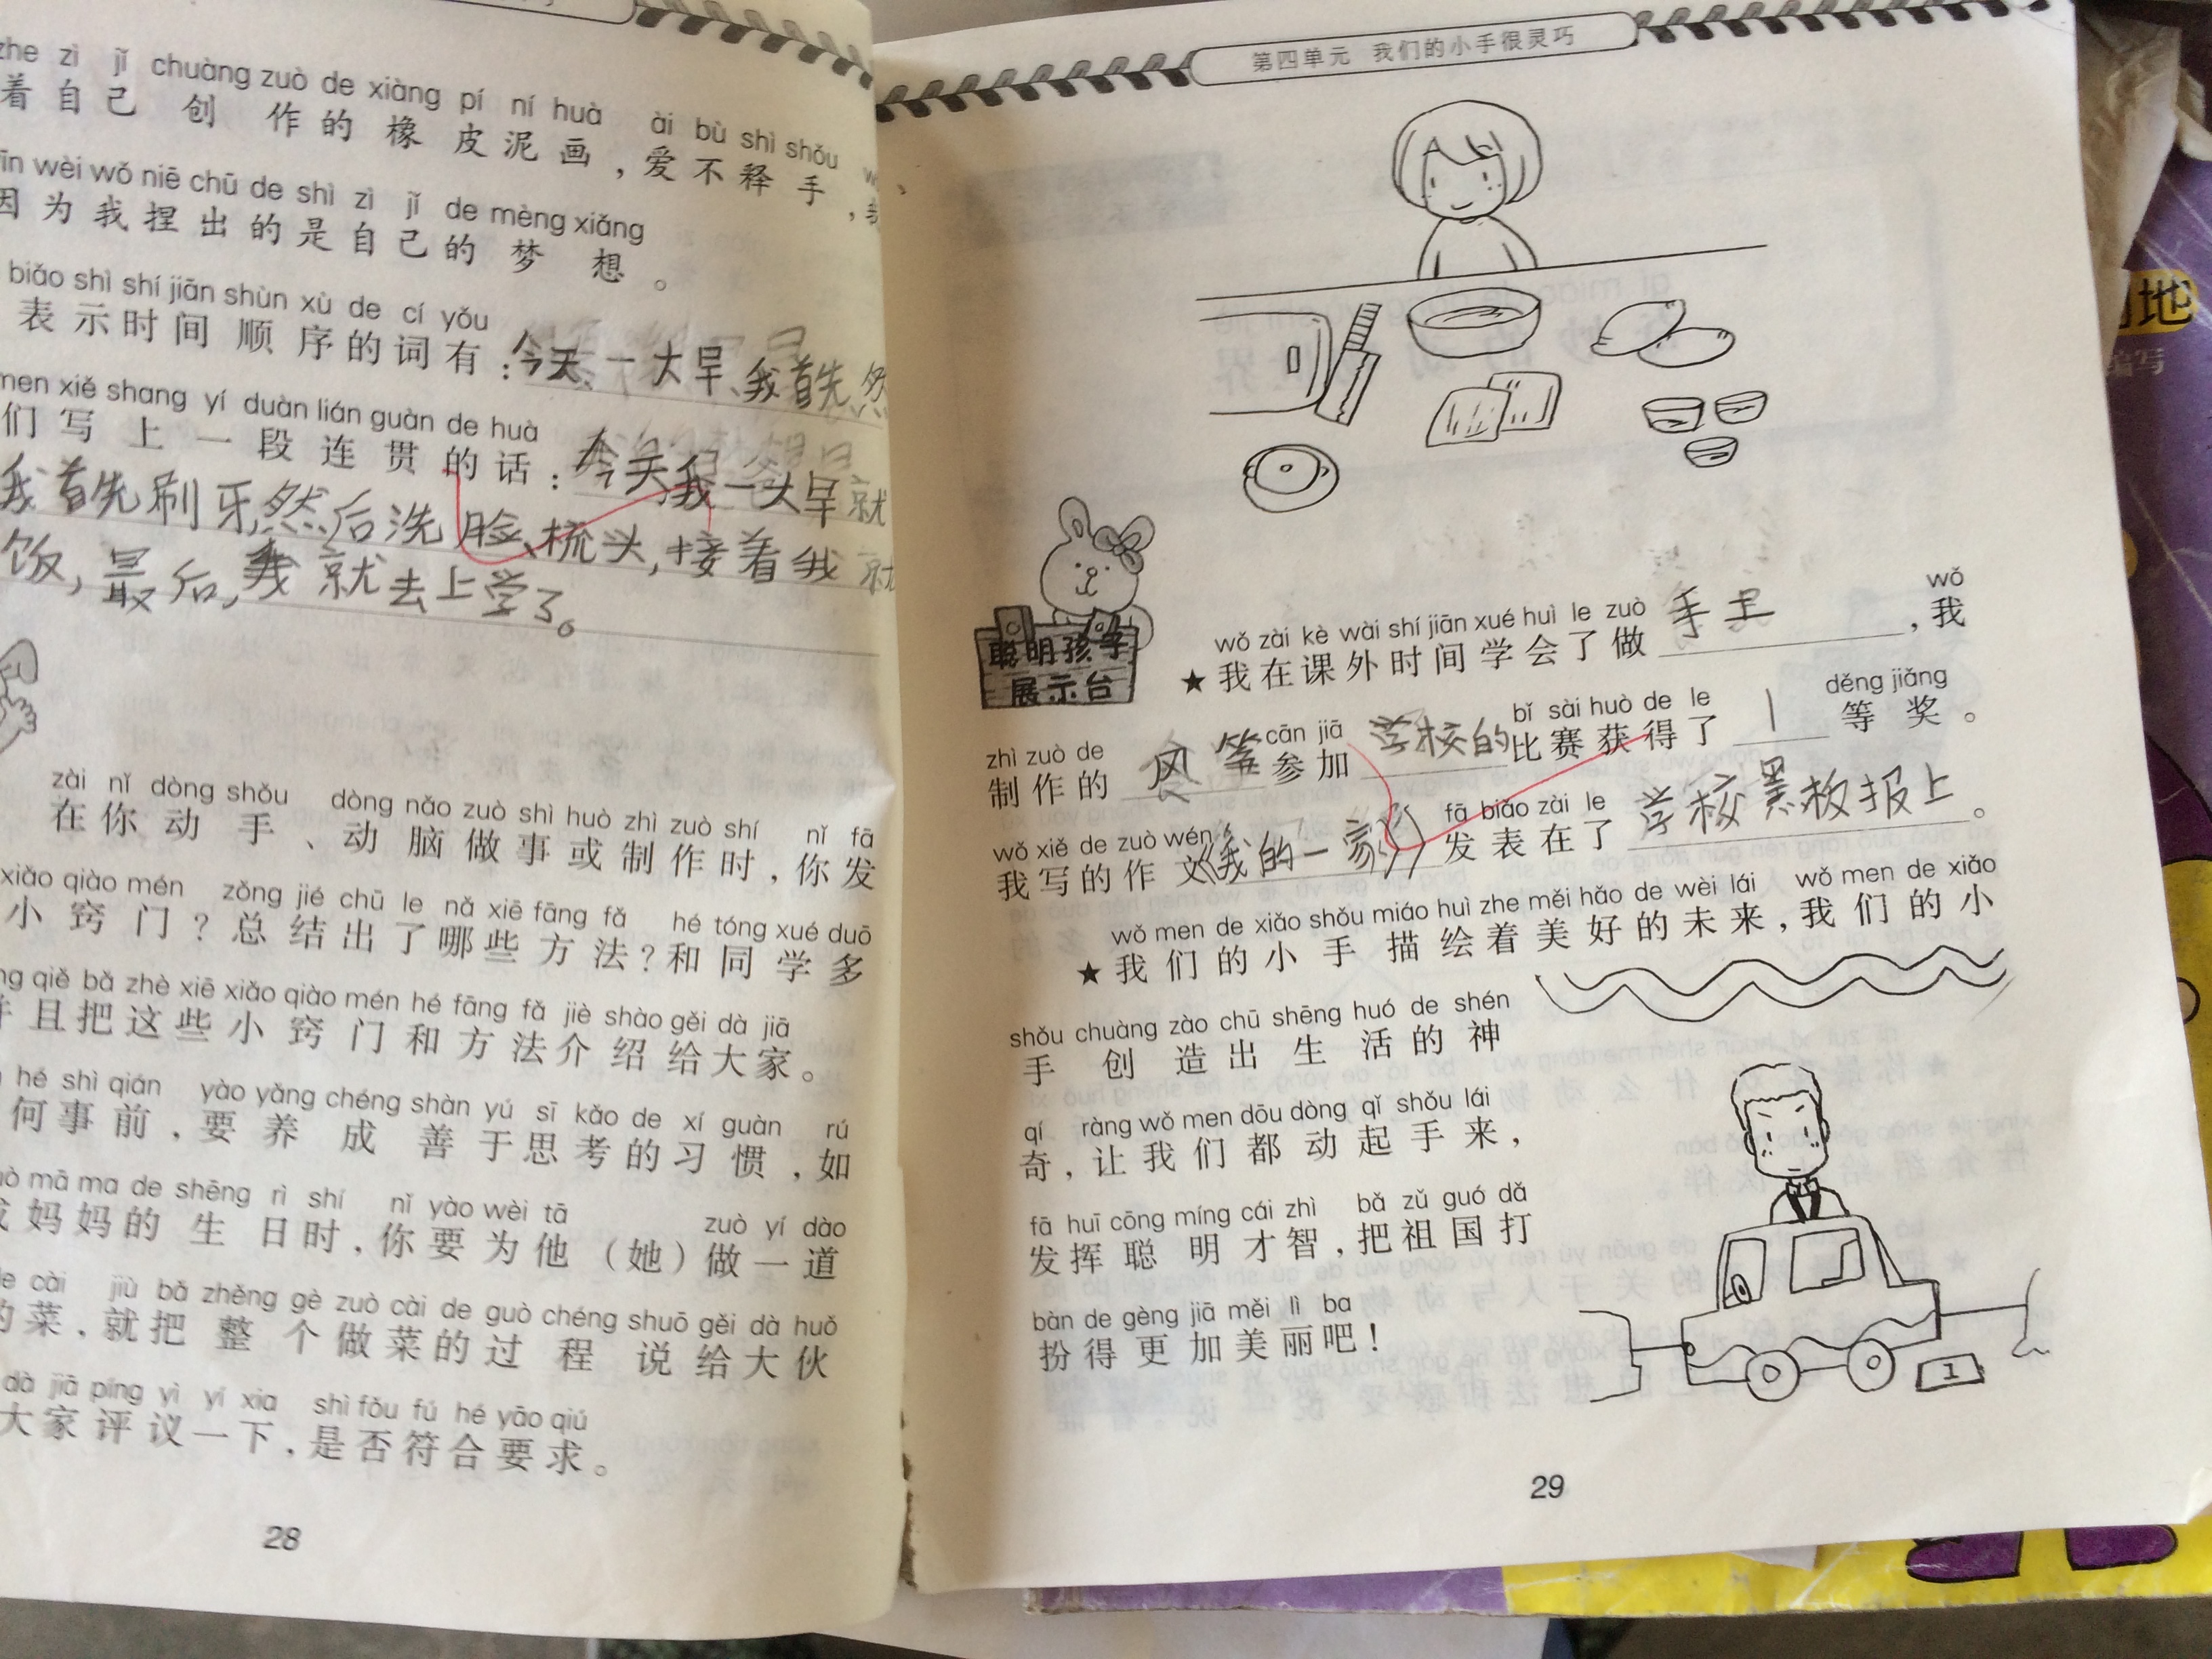 zhe zì jǐ chuàng zuò de xiàng pí ní huà ài bù shì shǒu
着自己创作的橡皮泥画，爱不释手，
yīn wèi wǒ niē chū de shì zì jǐ de mèng xiǎng
因为我捏出的是自己的梦想。
biǎo shì shí jiān shùn xù de cí yǒu
表示时间顺序的词有：今天、一大早、我首先、然
men xiě shang yí duàn lián guàn de huà
们写上一段连贯的话：今天我一大早就
我首先刷牙,然后洗脸、梳头,接着我就
饭,最后,我就去上学了。
zài nǐ dòng shǒu dòng nǎo zuò shì huò zhì zuò shí nǐ fā
在你动手、动脑做事或制作时，你发
xiǎo qiào mén zǒng jié chū le nǎ xiē fāng fǎ hé tóng xué duō
小窍门？总结出了哪些方法？和同学多
qiě bǎ zhè xiē xiǎo qiào mén hé fāng fǎ jiè shào gěi dà jiā
且把这些小窍门和方法介绍给大家。
hé shì qián yào yǎng chéng shàn yú sī kǎo de xí guàn rú
何事前，要养成善于思考的习惯，如
mā ma de shēng rì shí nǐ yào wèi tā zuò yí dào
妈妈的生日时，你要为他（她）做一道
cài jiù bǎ zhěng gè zuò cài de guò chéng shuō gěi dà huǒ
的菜，就把整个做菜的过程说给大伙
dà jiā píng yì yí xia shì fǒu fú hé yāo qiú
大家评议一下，是否符合要求。
28
第四单元 我们的小手很灵巧
聪明孩子
展示台
wǒ zài kè wài shí jiān xué huì le zuò wǒ
★我在课外时间学会了做手工，我
zhì zuò de cān jiā bǐ sài huò dé le děng jiǎng
制作的风筝参加学校的比赛获得了1等奖。
wǒ xiě de zuò wén fā biǎo zài le
我写的作文《我的一家》发表在了学校黑板报上。
wǒ men de xiǎo shǒu miáo huì zhe měi hǎo de wèi lái wǒ men de xiǎo
★我们的小手描绘着美好的未来，我们的小
shǒu chuàng zào chū shēng huó de shén
手创造出生活的神
qí ràng wǒ men dōu dòng qǐ shǒu lái
奇，让我们都动起手来，
fā huī cōng míng cái zhì bǎ zǔ guó dǎ
发挥聪明才智，把祖国打
bàn de gèng jiā měi lì ba
扮得更加美丽吧！
1
29
地
编写